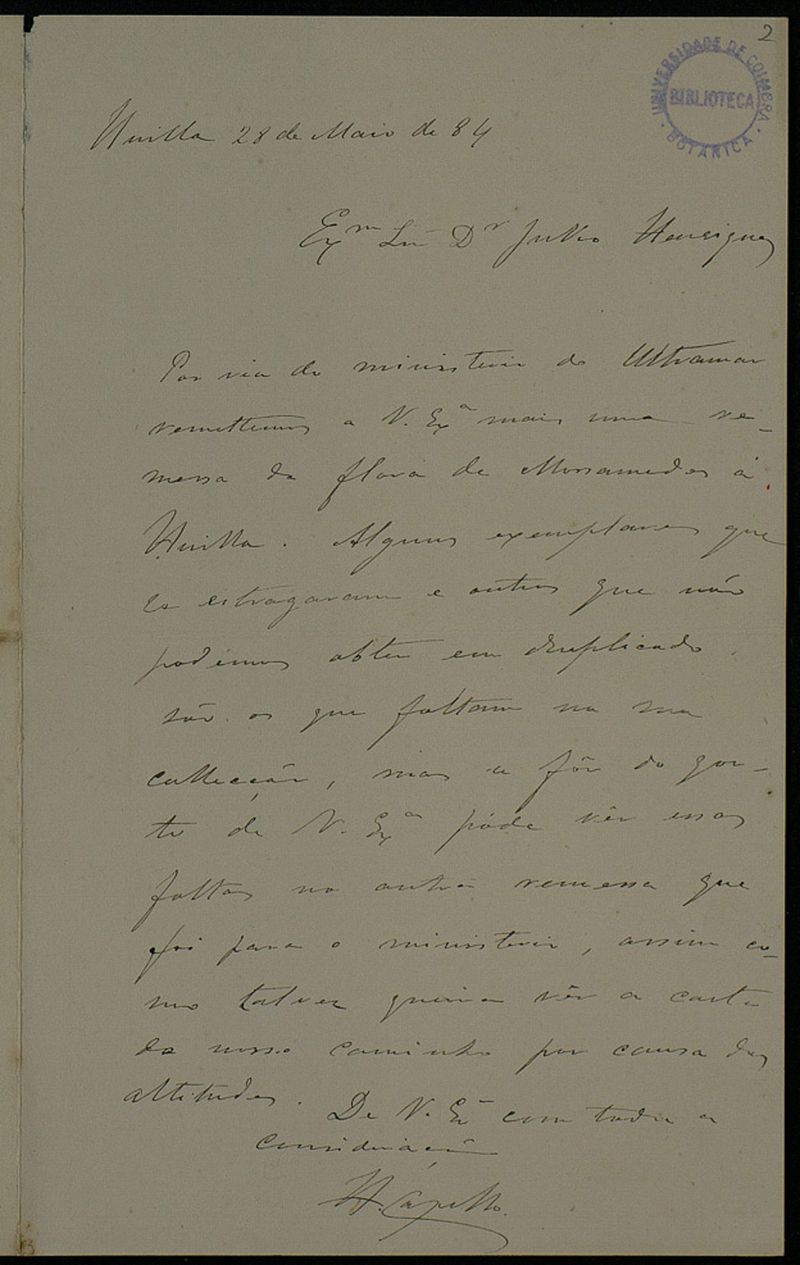 2
UNIVERSIDADE DE COIMBRA
BIBLIOTECA
BOTANICA
Huilla 28 de Maio de 84
Exmo Snr Dr Julio Henriques
Por via do ministerio do Ultramar
remettemos a V. Exa mais uma re-
messa da flora de Mossamedes á
Huilla. Alguns exemplares que
se estragaram e outros que não
podémos obter em duplicado,
são os que faltam na sua
collecção, mas se fôr do gos-
to de V. Exa póde vêr essas
faltas na outra remessa que
foi para o ministerio, assim co-
mo talvez queira vêr a carta
do nosso caminho por causa das
altitudes.
De V. Exa com toda a
consideração
H. Capello.